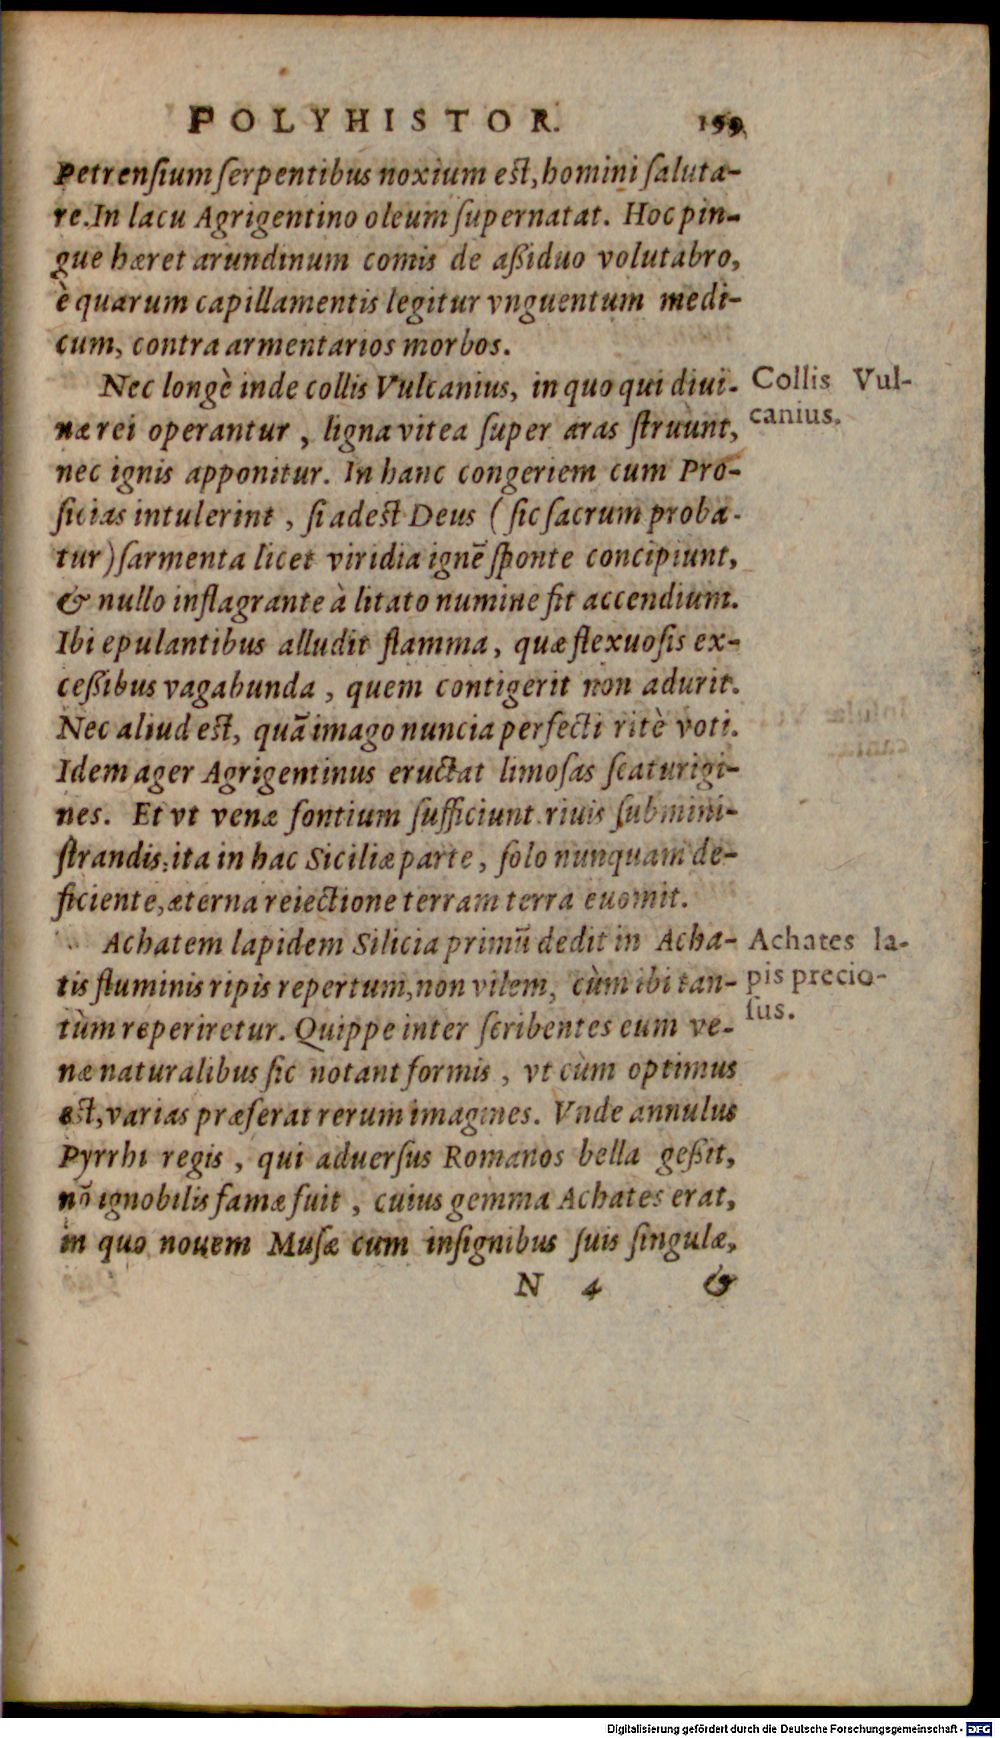 POLYHISTOR. 199
Petrensium serpentibus noxium est, homini saluta-
re. In lacu Agrigentino oleum supernatat. Hoc pin-
gue hæret arundinum comis de aßiduo volutabro,
è quarum capillamentis legitur vnguentum medi-
cum, contra armentarios morbos.
Nec longè inde collis Vulcanius, in quo qui diui-
næ rei operantur, ligna vitea super aras struunt,
nec ignis apponitur. In hanc congeriem cum Pro-
sicias intulerint, si adest Deus (sic sacrum proba-
tur) sarmenta licet viridia ignē sponte concipiunt,
& nullo inflagrante à litato numine fit accendium.
Ibi epulantibus alludit flamma, quæ flexuosis ex-
ceßibus vagabunda, quem contigerit non adurit.
Nec aliud est, quā imago nuncia perfecti ritè voti.
Idem ager Agrigentinus eructat limosas scaturigi-
nes. Et vt venæ fontium sufficiunt riuis submini-
strandis: ita in hac Siciliæ parte, solo nunquam de-
ficiente, æterna reiectione terram terra euomit.
Achatem lapidem Silicia primū dedit in Acha-
tis fluminis ripis repertum, non vilem, cùm ibi tan-
tùm reperiretur. Quippe inter scribentes eum ve-
næ naturalibus sic notant formis, vt cùm optimus
est, varias præferat rerum imagines. Vnde annulus
Pyrrhi regis, qui aduersus Romanos bella geßit,
nō ignobilis famæ fuit, cuius gemma Achates erat,
in quo nouem Musæ cum insignibus suis singulæ,
N 4 &
Collis Vul-
canius.
Achates la-
pis precio-
sus.
Digitalisierung gefördert durch die Deutsche Forschungsgemeinschaft - DFG